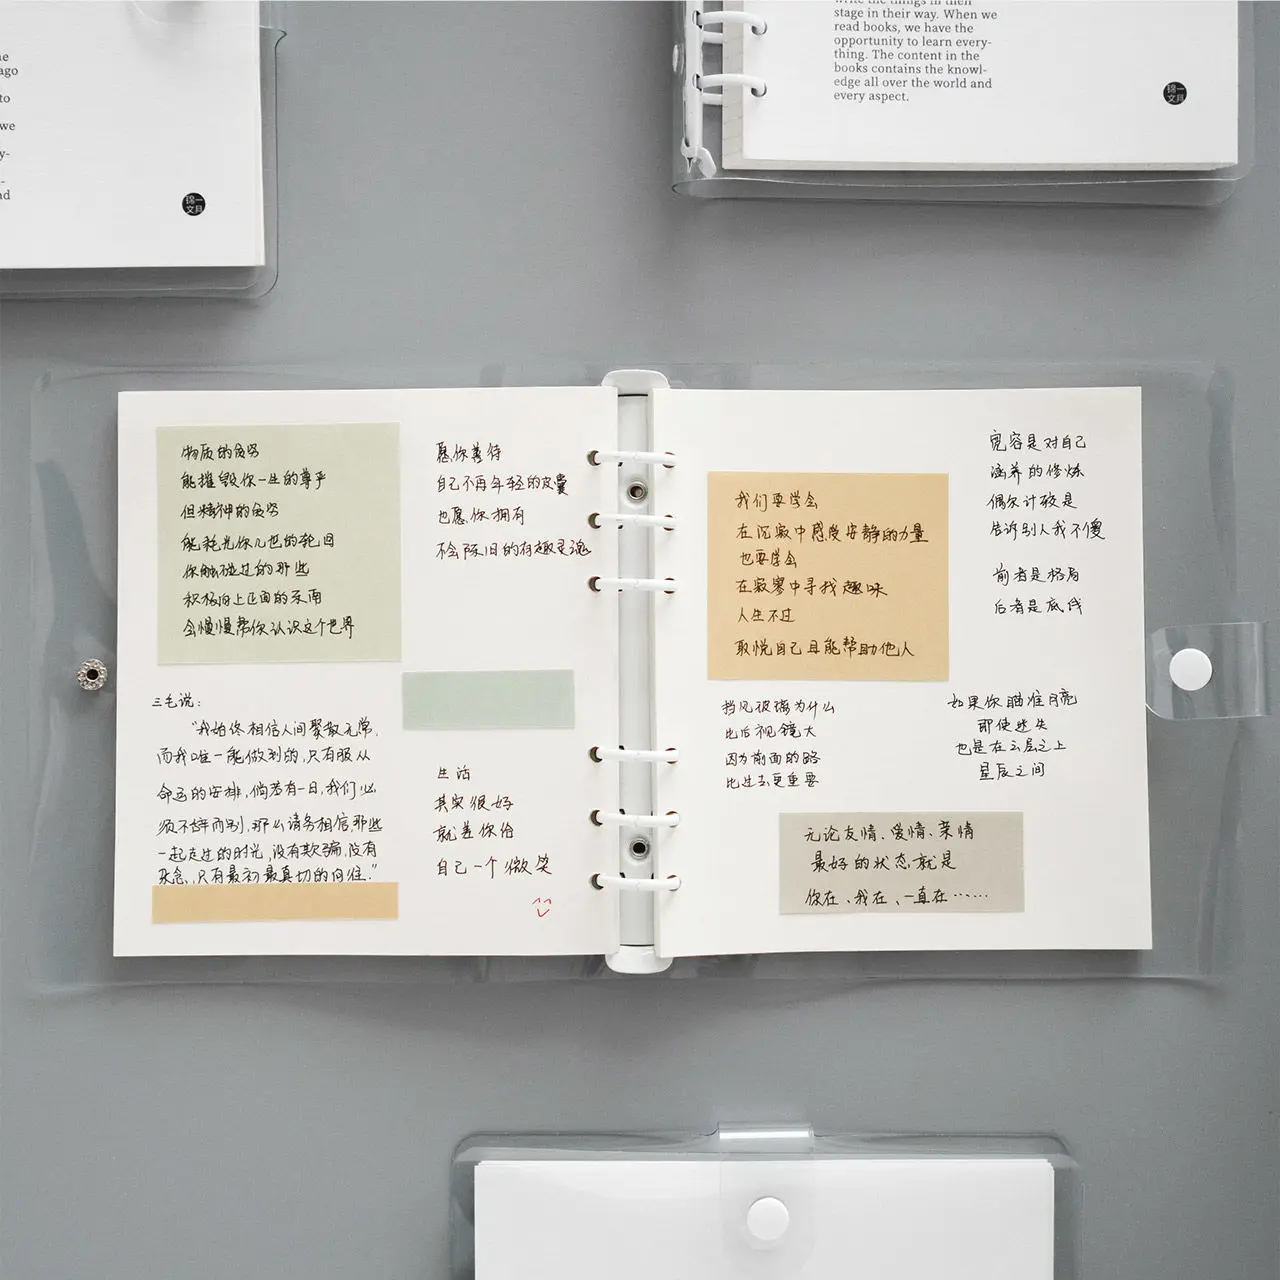 e
ago
to
we
y-
-
nd
锦一
文具
write the things in their
stage in their way. When we
read books, we have the
opportunity to learn every-
thing. The content in the
books contains the knowl-
edge all over the world and
every aspect.
锦一
文具
物质的贫穷
能摧毁你一生的尊严
但精神的贫穷
能耗光你几世的轮回
你触碰过的那些
积极向上正面的东西
会慢慢帮你认识这个世界
三毛说:
"我始终相信人间聚散无常,
而我唯一能做到的,只有服从
命运的安排,倘若有一日,我们必
须不辞而别,那么请务相信,那些
一起走过的时光,没有欺骗,没有
杂念,只有最初最真切的向往."
愿你善待
自己不再年轻的皮囊
也愿你拥有
不会陈旧的有趣灵魂
生活
其实很好
就差你给
自己一个微笑
我们要学会
在沉寂中感受安静的力量
也要学会
在寂寞中寻找趣味
人生不过
取悦自己且能帮助他人
宽容是对自己
涵养的修炼
偶尔计较是
告诉别人我不傻
前者是格局
后者是底线
挡风玻璃为什么
比后视镜大
因为前面的路
比过去更重要
如果你瞄准月亮
即使迷失
也是在云层之上
星辰之间
无论友情、爱情、亲情
最好的状态就是
你在、我在、一直在……